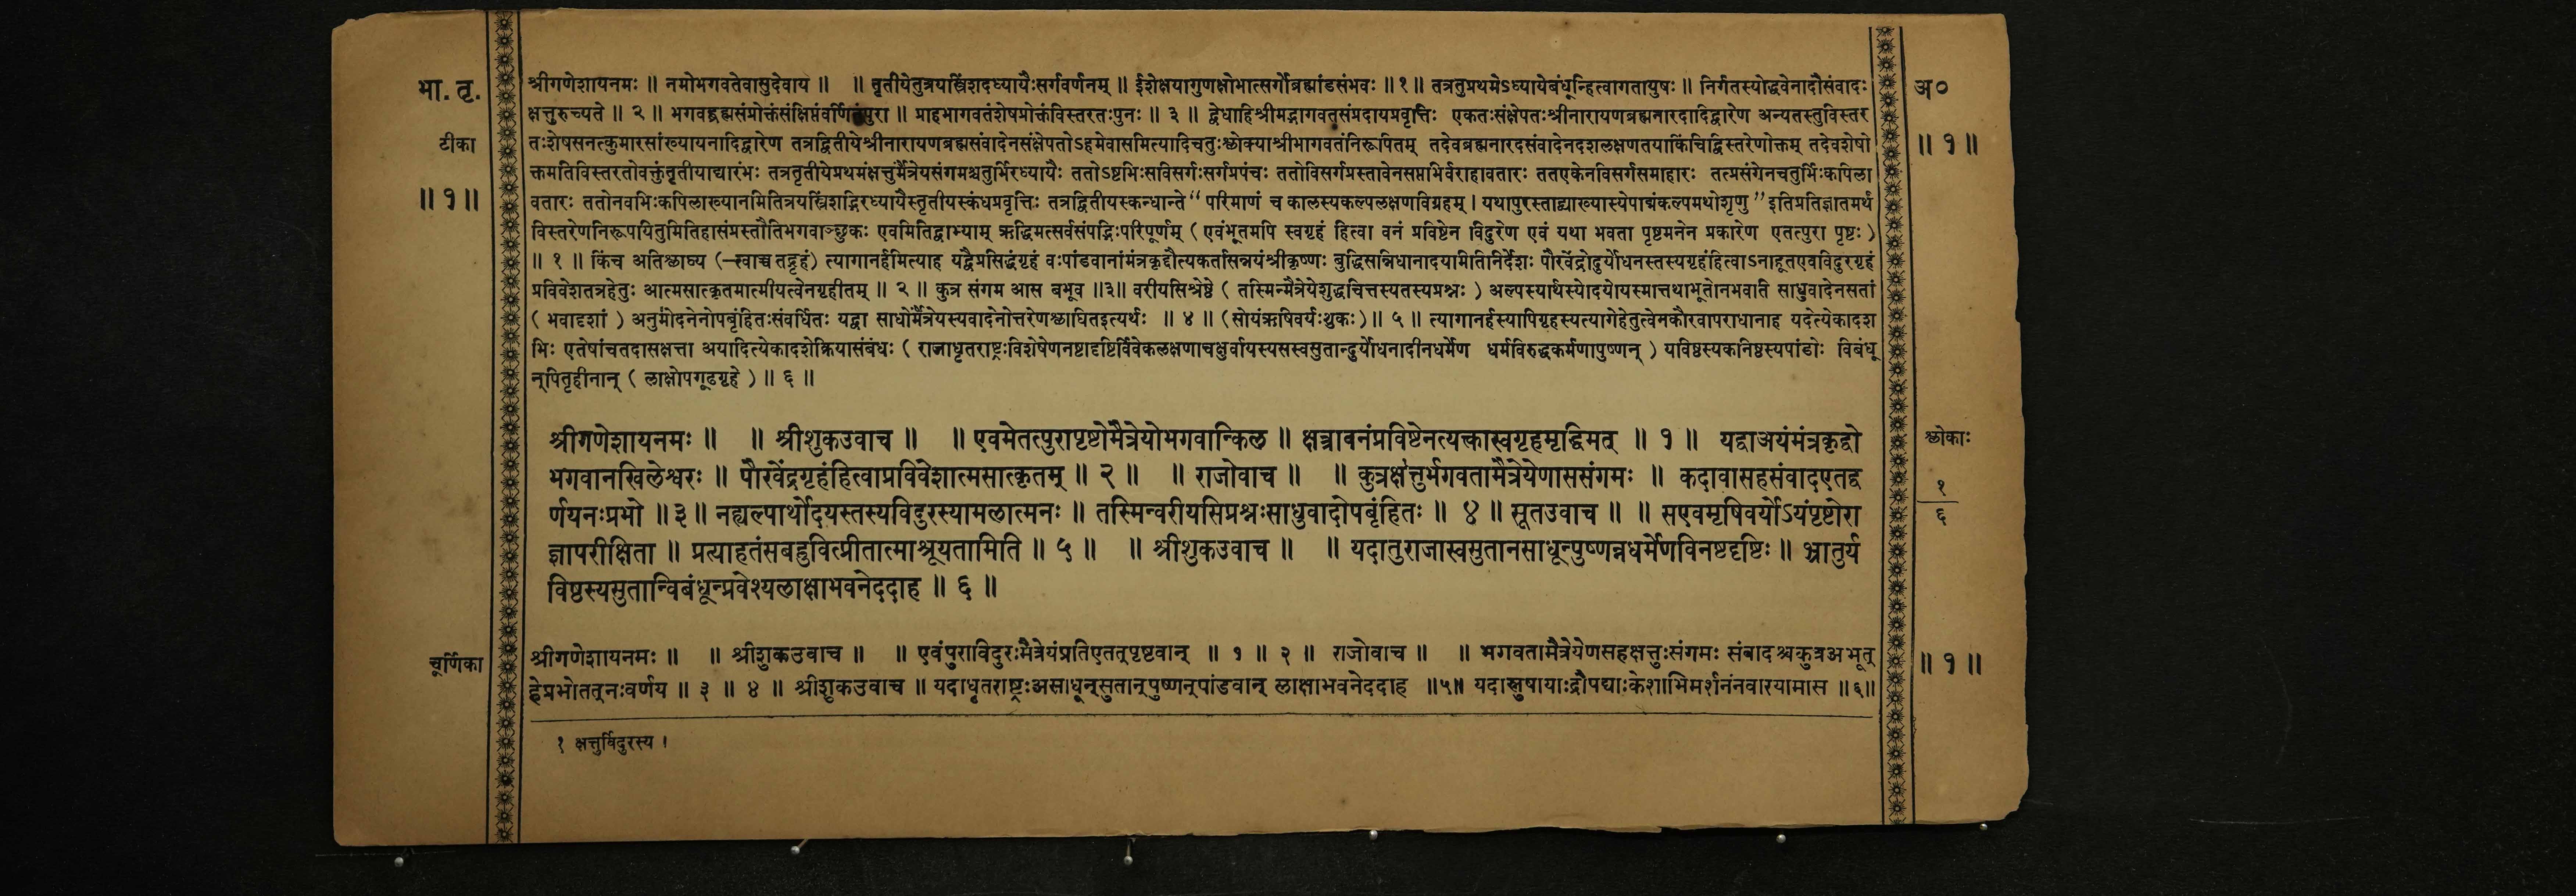 भा. तृ.
टीका
॥ १ ॥
श्रीगणेशायनमः ॥ नमोभगवतेवासुदेवाय ॥ ॥ तृतीयेतुत्रयस्त्रिंशदध्यायैःसर्गवर्णनम् ॥ ईशेक्षयागुणक्षोभात्सर्गोब्रह्मांडसंभवः ॥ १ ॥ तत्रतुप्रथमेऽध्यायेबंधून्हित्वागतायुषः ॥ निर्गतस्योद्धवेनादौसंवादः
क्षत्तुरुच्यते ॥ २ ॥ भगवद्ब्रह्मसंप्रोक्तंसंक्षिप्तंवर्णितंपुरा ॥ प्राहभागवतंशेषप्रोक्तंविस्तरतःपुनः ॥ ३ ॥ द्वेधाहिश्रीमद्भागवतसंप्रदायप्रवृत्तिः एकतःसंक्षेपतःश्रीनारायणब्रह्मनारदादिद्वारेण अन्यतस्तुविस्तर
तःशेषसनत्कुमारसांख्यायनादिद्वारेण तत्रद्वितीयेश्रीनारायणब्रह्मसंवादेनसंक्षेपतोऽहमेवासमित्यादिचतुःश्लोक्याश्रीभागवतंनिरूपितम् तदेवब्रह्मनारदसंवादेनदशलक्षणतयाकिंचिद्विस्तरेणोक्तम् तदेवशेषो
क्तमतिविस्तरतोवक्तुंतृतीयाद्यारंभः तत्रतृतीयेप्रथमंक्षत्तुर्मैत्रेयसंगमश्चतुर्भिरध्यायैः ततोऽष्टभिःसविसर्गःसर्गप्रपंचः ततोविसर्गप्रस्तावेनसप्तभिर्वराहावतारः ततएकेनविसर्गसमाहारः तत्प्रसंगेनचतुर्भिःकपिला
वतारः ततोनवभिःकपिलाख्यानमितित्रयस्त्रिंशद्भिरध्यायैस्तृतीयस्कंधप्रवृत्तिः तत्रद्वितीयस्कन्धान्ते “ परिमाणं च कालस्यकल्पलक्षणविग्रहम् । यथापुरस्ताद्व्याख्यास्येपाद्मंकल्पमथोशृणु ” इतिप्रतिज्ञातमर्थं
विस्तरेणनिरूपयितुमितिहासंप्रस्तौतिभगवाञ्छुकः एवमितिद्वाभ्याम् ऋद्धिमत्सर्वसंपद्भिःपरिपूर्णम् ( एवंभूतमपि स्वगृहं हित्वा वनं प्रविष्टेन विदुरेण एवं यथा भवता पृष्टमनेन प्रकारेण एतत्पुरा पृष्टः )
॥ १ ॥ किंच अतिश्लाघ्य (–त्वाच्च तद्गृहं) त्यागानर्हमित्याह यद्वैप्रसिद्धंगृहं वःपांडवानांमंत्रकृद्दौत्यकर्तासन्नयंश्रीकृष्णः बुद्धिसन्निधानादयमितिनिर्देशः पौरवेंद्रोदुर्योधनस्तस्यगृहंहित्वाऽनाहूतएवविदुरगृहं
प्रविवेशतत्रहेतुः आत्मसात्कृतमात्मीयत्वेनगृहीतम् ॥ २ ॥ कुत्र संगम आस बभूव ॥३॥ वरीयसिश्रेष्ठे ( तस्मिन्मैत्रेयेशुद्धचित्तस्यतस्यप्रश्नः ) अल्पस्यार्थस्योदयोयस्मात्तथाभूतोनभवति साधुवादेनसतां
( भवादृशां ) अनुमोदनेनोपबृंहितःसंवर्धितः यद्वा साधोर्मैत्रेयस्यवादेनोत्तरेणश्लाघितइत्यर्थः ॥ ४ ॥ (सोयंऋषिवर्यःशुकः)॥ ५ ॥ त्यागानर्हस्यापिगृहस्यत्यागेहेतुत्वेनकौरवापराधानाह यदेत्येकादश
भिः एतेषांचतदासक्षत्ता अयादित्येकादशेक्रियासंबंधः ( राजाधृतराष्ट्रःविशेषेणनष्टादृष्टिर्विवेकलक्षणाचक्षुर्वायस्यसस्वसुतान्दुर्योधनादीनधर्मेण धर्मविरुद्धकर्मणापुष्णन् ) यविष्ठस्यकनिष्ठस्यपांडोः विबंधू
न्पितृहीनान् ( लाक्षोपगूढगृहे ) ॥ ६ ॥
श्रीगणेशायनमः ॥ ॥ श्रीशुकउवाच ॥ ॥ एवमेतत्पुरापृष्टोमैत्रेयोभगवान्किल ॥ क्षत्त्रावनंप्रविष्टेनत्यक्तास्वगृहमृद्धिमत् ॥ १ ॥ यद्वाअयंमंत्रकृद्वो
भगवानखिलेश्वरः ॥ पौरवेंद्रगृहंहित्वाप्रविवेशात्मसात्कृतम् ॥ २ ॥ ॥ राजोवाच ॥ ॥ कुत्रक्षत्तुर्भगवतामैत्रेयेणाससंगमः ॥ कदावासहसंवादएतद्व
र्णयनःप्रभो ॥ ३ ॥ नह्यल्पार्थोदयस्तस्यविदुरस्यामलात्मनः ॥ तस्मिन्वरीयसिप्रश्नःसाधुवादोपबृंहितः ॥ ४ ॥ सूतउवाच ॥ ॥ सएवमृषिवर्योऽयंपृष्टोरा
ज्ञापरीक्षिता ॥ प्रत्याहतंसबहुवित्प्रीतात्माश्रूयतामिति ॥ ५ ॥ ॥ श्रीशुकउवाच ॥ ॥ यदातुराजास्वसुतानसाधून्पुष्णन्नधर्मेणविनष्टदृष्टिः ॥ भ्रातुर्य
विष्ठस्यसुतान्विबंधून्प्रवेश्यलाक्षाभवनेददाह ॥ ६ ॥
चूर्णिका
श्रीगणेशायनमः ॥ ॥ श्रीशुकउवाच ॥ ॥ एवंपुराविदुरःमैत्रेयंप्रतिएतत्पृष्टवान् ॥ १ ॥ २ ॥ राजोवाच ॥ ॥ भगवतामैत्रेयेणसहक्षत्तुःसंगमः संवादश्चकुत्रअभूत्
हेप्रभोतत्नःवर्णय ॥ ३ ॥ ४ ॥ श्रीशुकउवाच ॥ यदाधृतराष्ट्रःअसाधून्सुतान्पुष्णन्पांडवान् लाक्षाभवनेददाह ॥५॥ यदास्नुषायाःद्रौपद्याःकेशाभिमर्शनंनवारयामास ॥ ६॥
१ क्षत्तुर्विदुरस्य ।
अ०
॥ १ ॥
श्लोकाः
१
६
॥ १ ॥